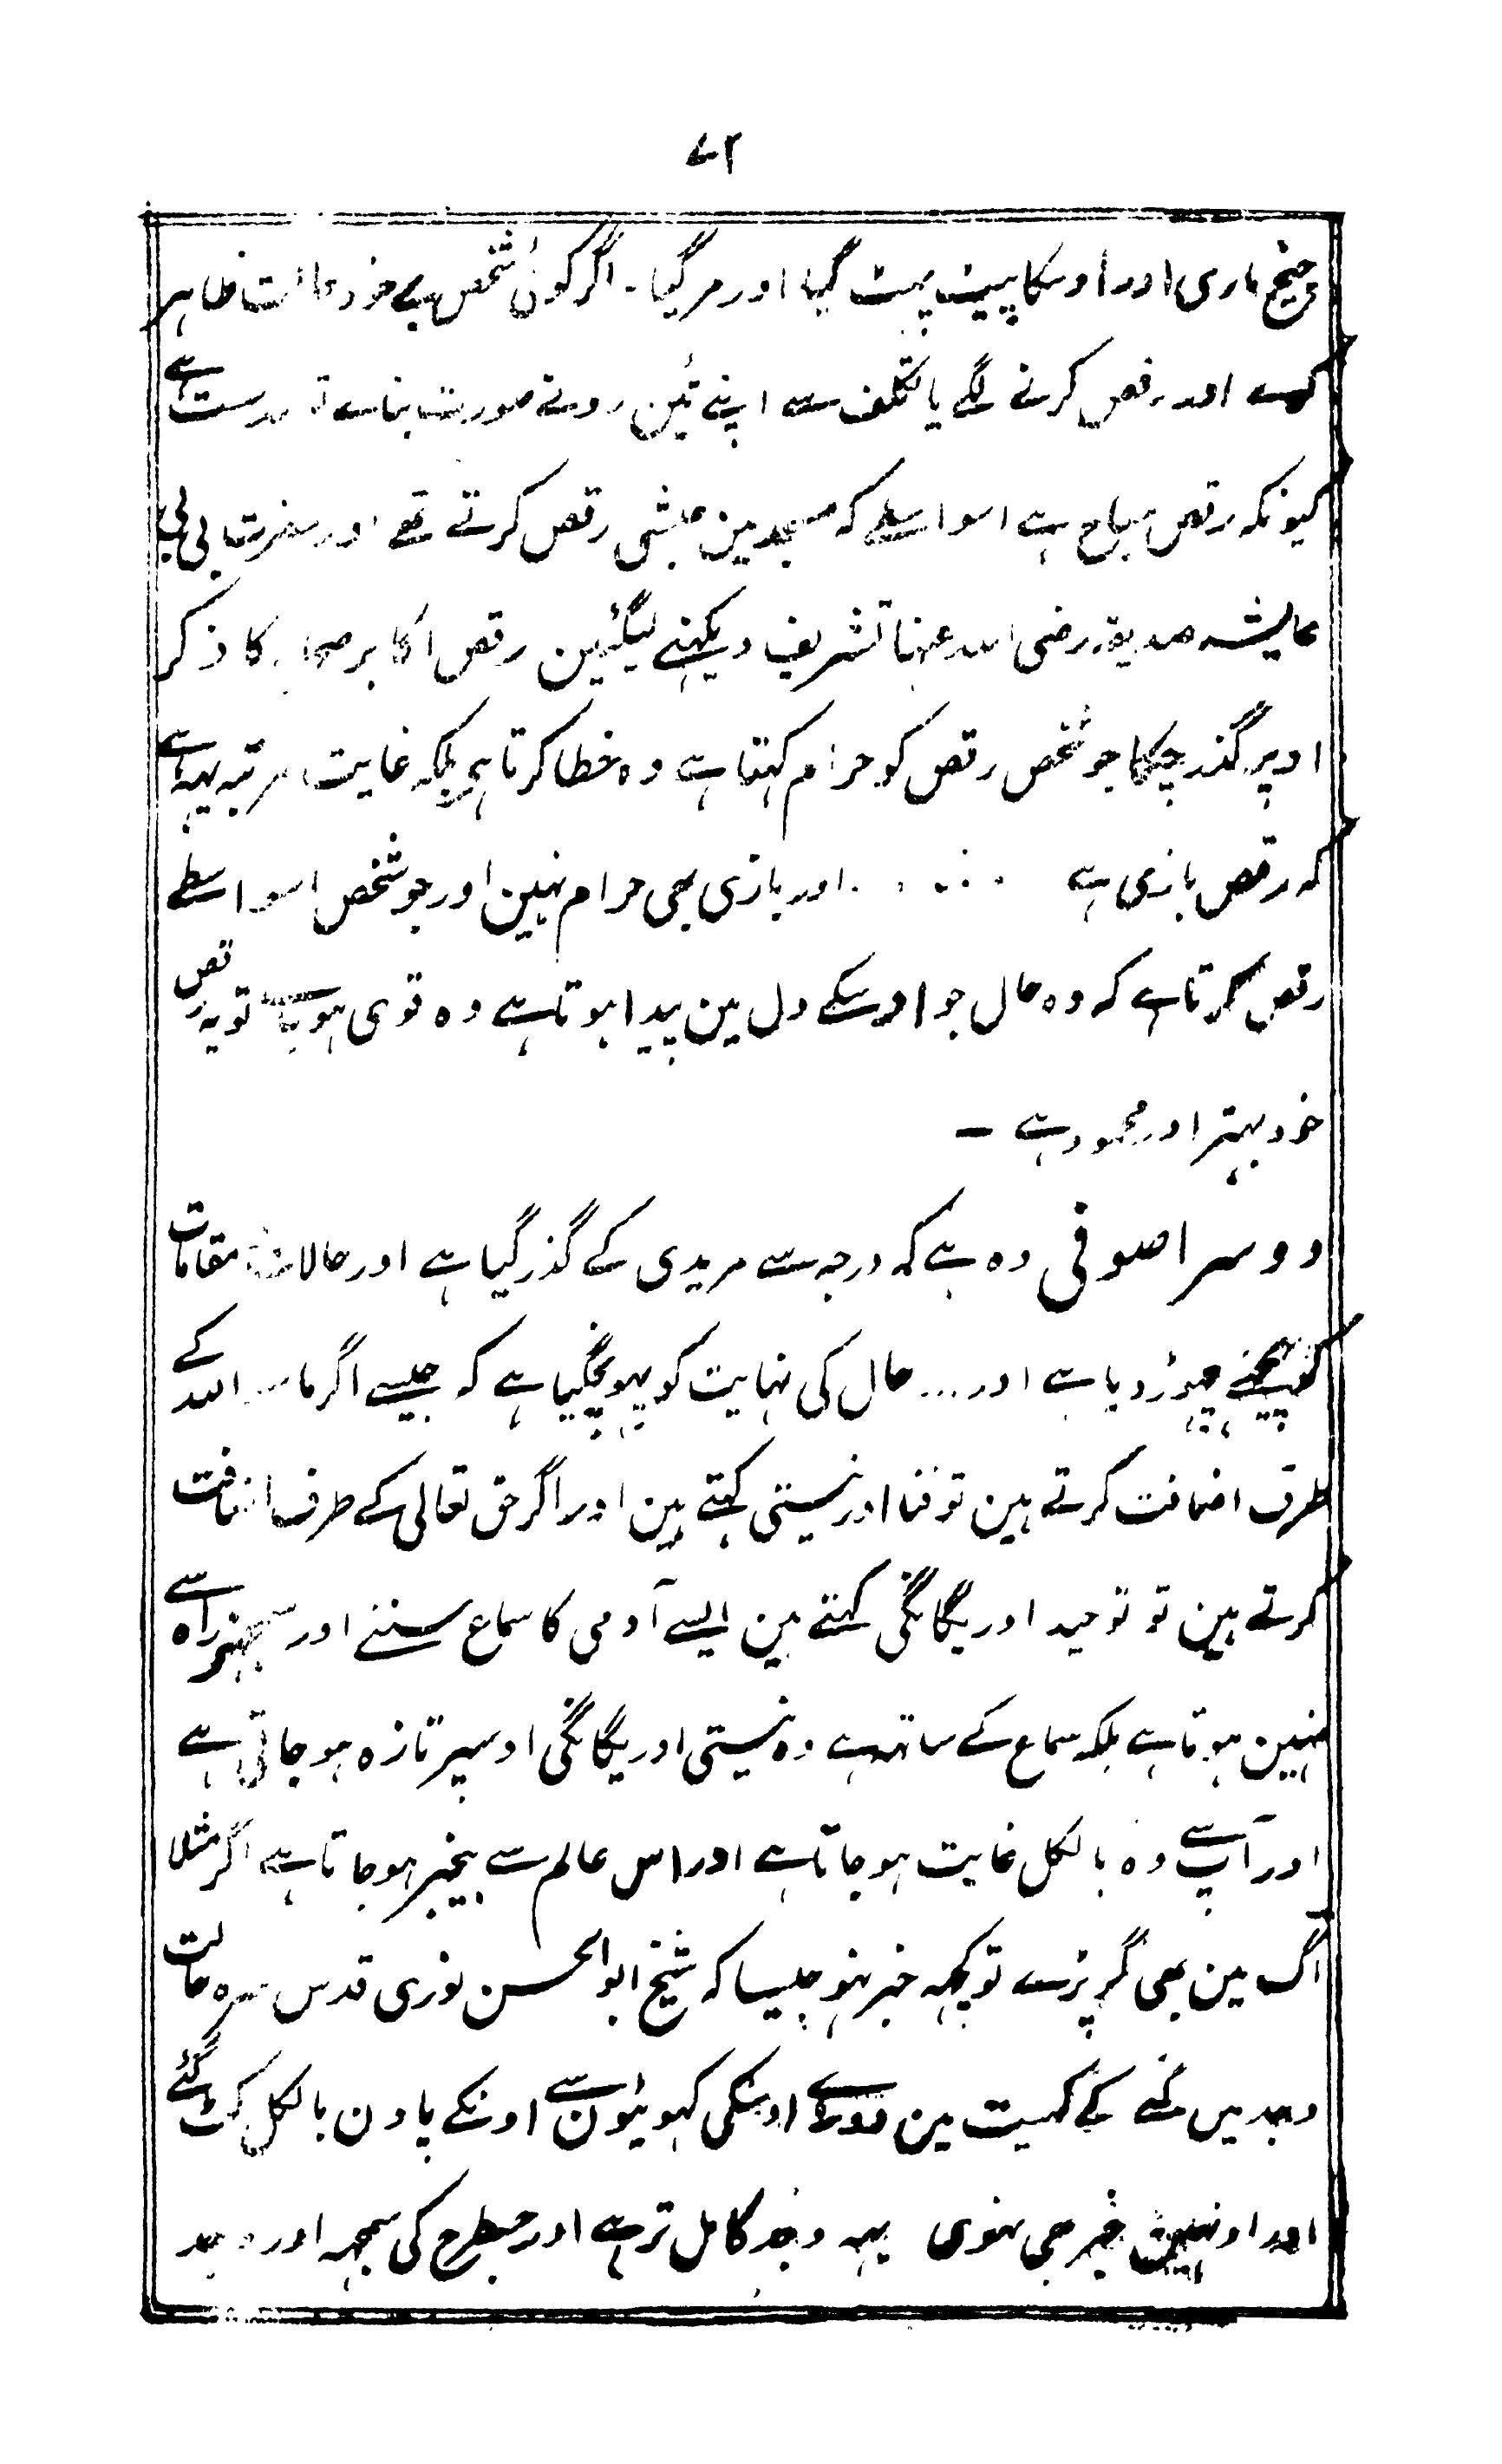 ۷۲
چیخ ماری اور اوسکا پیٹ پہٹ گیا اور مر گیا۔ اگر کوئی شخص بے خود حالت ظاہر
کرے اور رقص کرنے لگے یا تکلف سے اپنے تئین رونے صورت بناے تو درست ہے
کیونکہ رقص مباح ہے اسواسطے کہ مسجد مین حبشی رقص کرتے تھے اور حضرت بی بی
عایشہ صدیقہ رضی اللہ عنہا تشریف دیکہنے لیگئین رقص اکابر صحابہ کا ذکر
اوپر گذر چکا جو شخص رقص کو حرام کہتا ہے وہ خطا کرتا ہی بلکہ غایت مرتبہ یہہ ہے
کہ رقص بازی ہے اور بازی بھی حرام نہین اور جو شخص اسواسطے
رقص کرتا ہے کہ وہ حال جو اوسکے دل مین پیدا ہوتا ہے وہ قوی ہو تو یہ رقص
خود بہتر اور محمود ہے ۔
دوسرا صوفی وہ ہے کہ درجہ سے مریدی کے گذر گیا ہے اور حالات مقامات
کو پیچھے چہوڑ دیا ہے اور ... حال کی نہایت کو پہونچگیا ہے کہ جیسے اگر ماسوا اللہ کے
طرف اضافت کرتے ہین تو فنا اور نیستی کہتے ہین اور اگر حق تعالی کے طرف اضافت
کرتے ہین تو توحید اور یگانگی کہتے ہین ایسے آدمی کا سماع سننے اور سمجہنے راہ سے
نہین ہوتا ہے بلکہ سماع کے ساتہہ ہے وہ نیستی اور یگانگی اوسپر تازہ ہو جاتی ہے
اور آپ سے وہ بالکل غایب ہو جاتا ہے اور اس عالم سے بیخبر ہو جاتا ہے اگر مثلا
آگ مین بھی گر پڑے تو کچہہ خبر نہو جیسا کہ شیخ ابو الحسن نوری قدس سرہ حالت
وجد میں گنے کے کہیت مین دوڑے اوسکی کہونٹیون سے اونکے پاون بالکل کٹ گئے
اور اونہین خبر بھی نہوی یہہ وجد کامل تر ہے اور جسطرح کی سمجہہ اور وجد